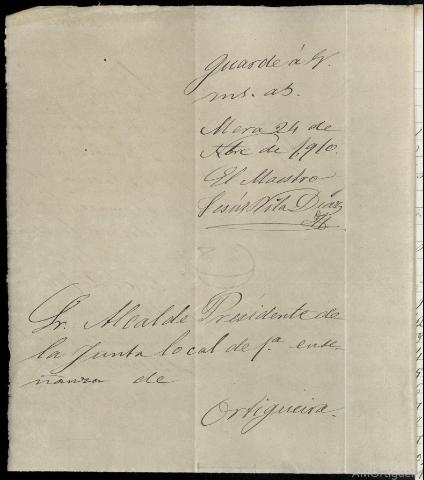 guarde á V.
ms. as.
Mera 24 de
Nbre de 1,910.
El Maestro
Jesús Vila Díaz
Sr. Alcalde Presidente de
la Junta local de 1ª ense-
ñanza de
Ortigueira.